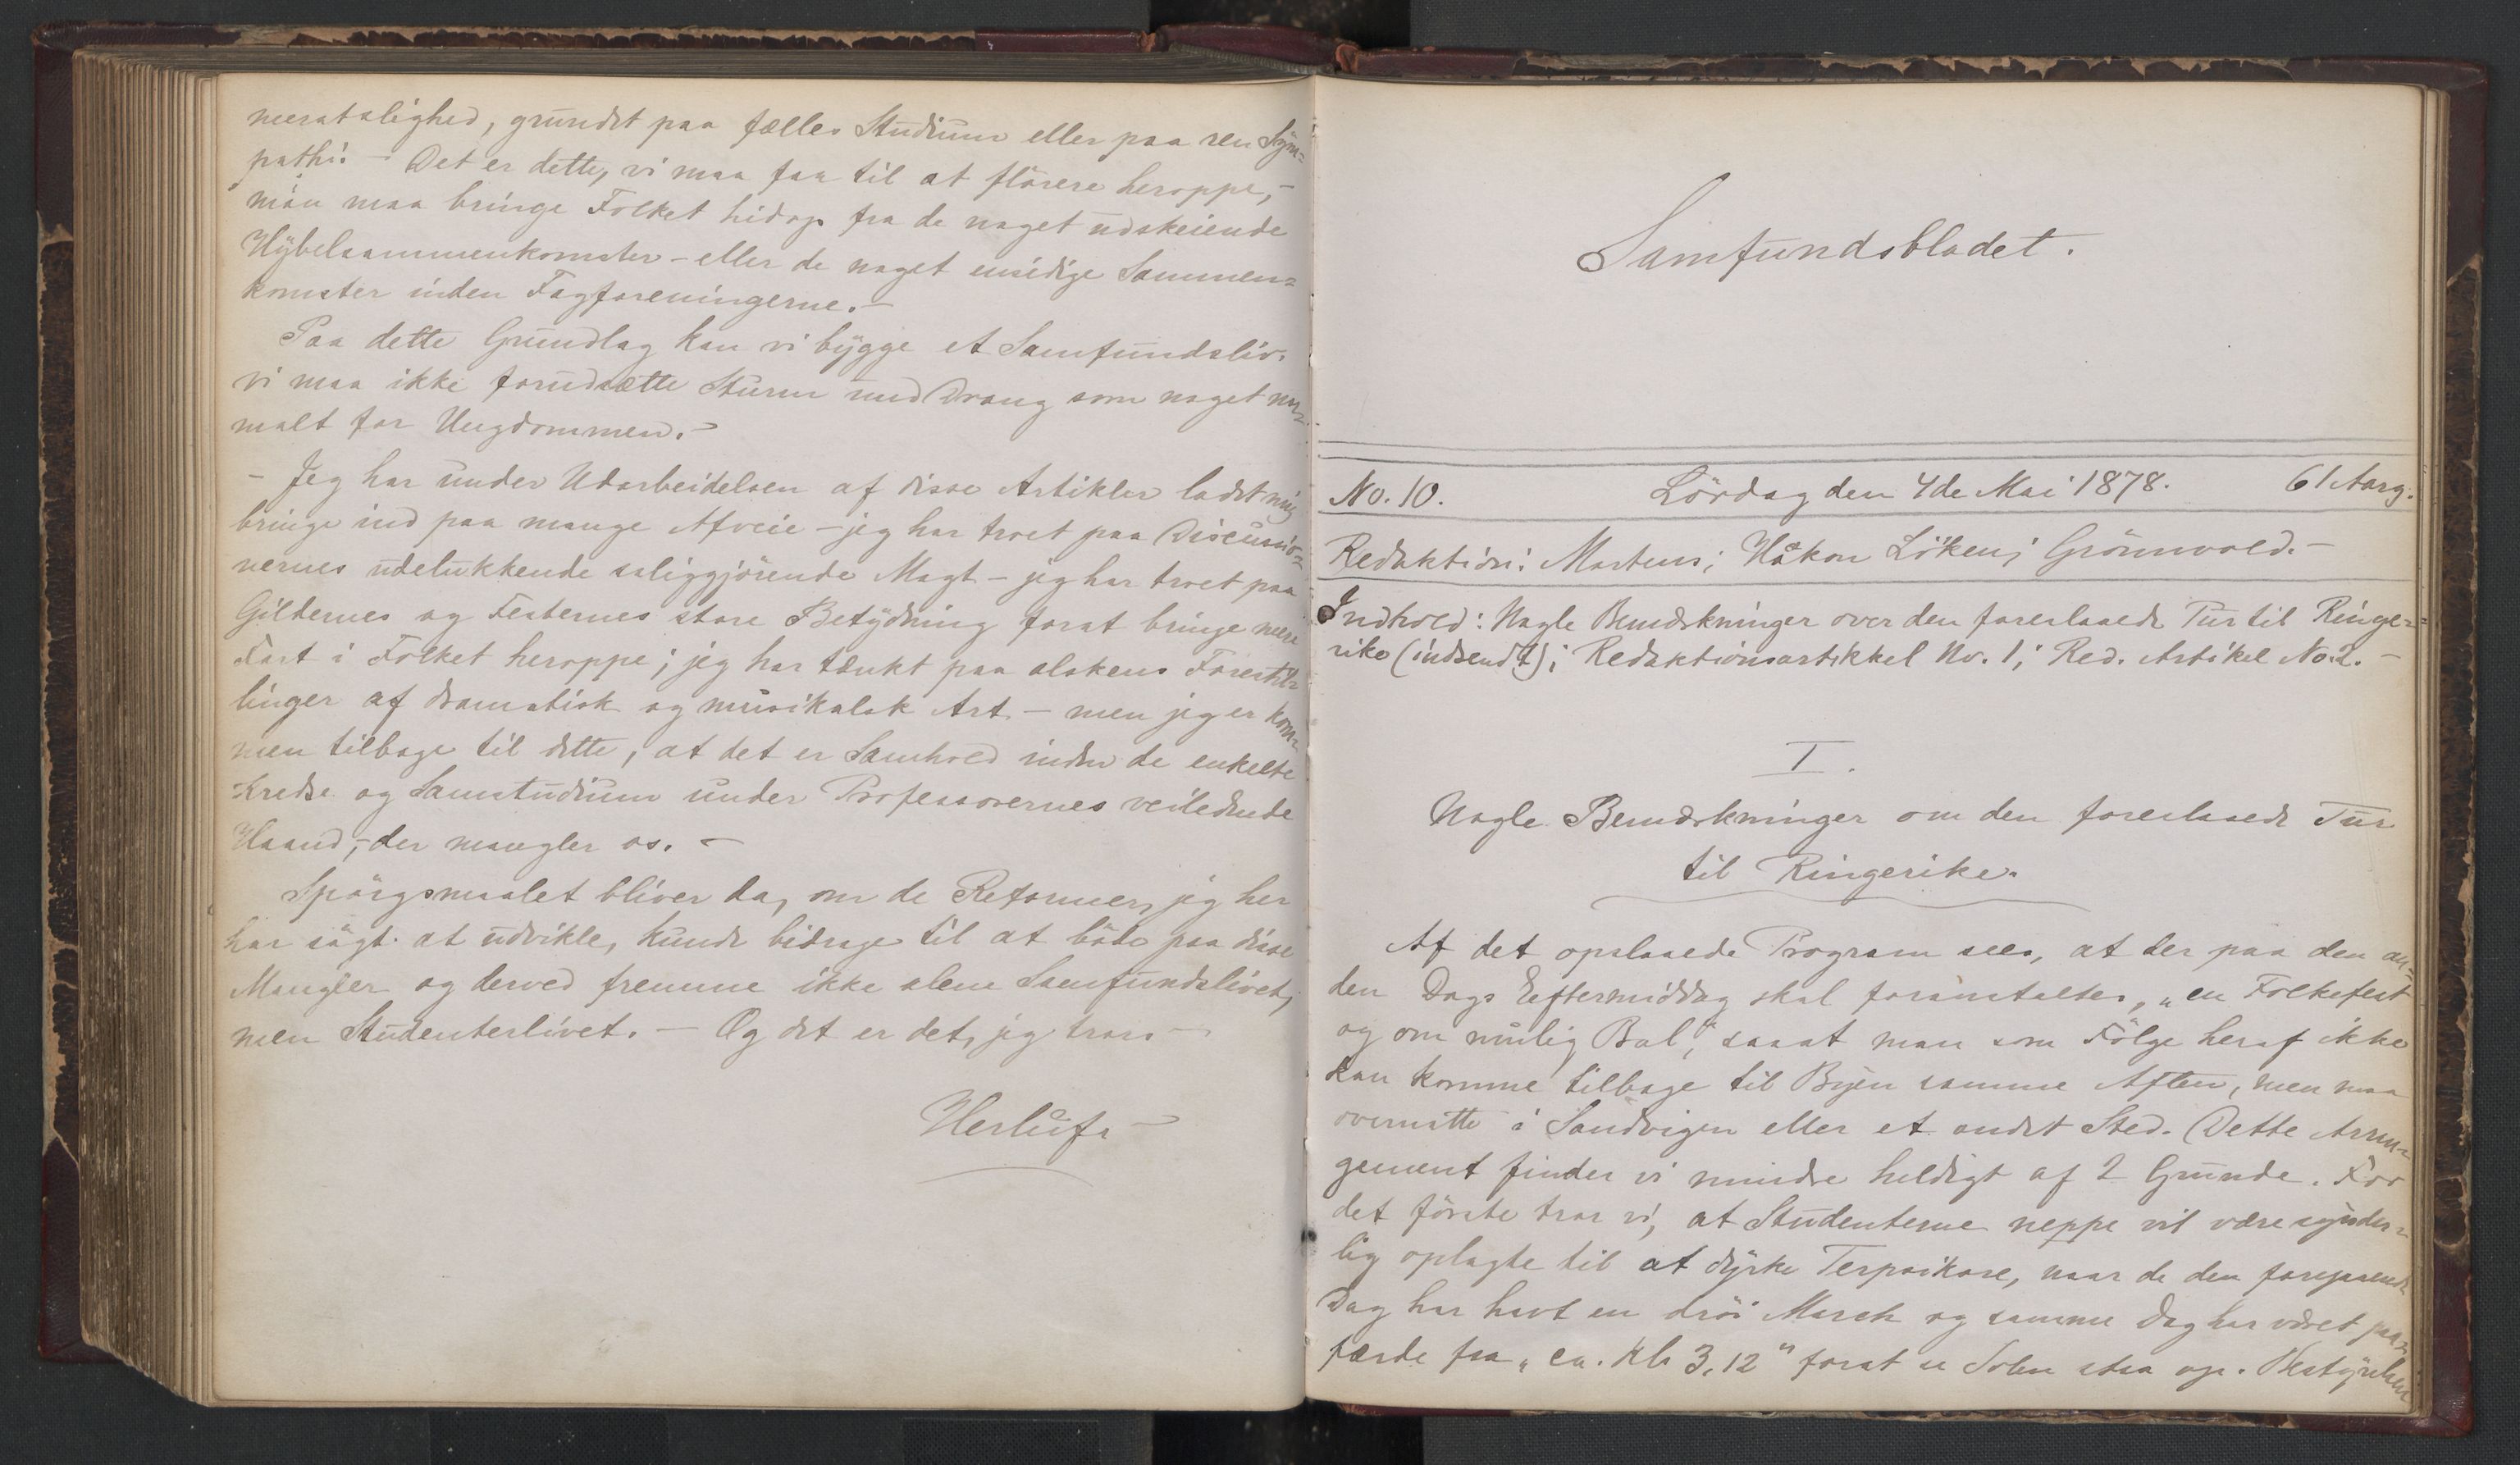 meratalighed, grundet paa fælles Studium eller paa ren Sym=
pathi. – Det er dette, vi maa faa til at florere heroppe, –
man maa bringe Folket hidop fra de noget udskeiende
Hybelsammenkomster – eller de noget ensidige Sammen=
komster inden Fagforeningerne. –
Paa dette Grundlag kan vi bygge et Samfundsliv.
vi maa ikke forudsætte Sturm und Drang som noget nor=
malt for Ungdommen. –
– Jeg har under Udarbeidelsen af disse Artikler ladet mig
bringe ind paa mange Afveie – jeg har troet paa Discussio=
nernes udelukkende saliggjörende Magt – jeg har troet paa
Gildernes og Festernes store Betydning forat bringe mere
Fart i Folket heroppe; jeg har tænkt paa alskens Forestil=
linger af dramatisk og musikalsk Art – men jeg er kom=
men tilbage til dette, at det er Samhold inden de enkelte
Kredse og Samstudium under Professorernes veiledende
Haand, – der mangler os. –
Spörgsmaalet bliver da, om de Reformer, jeg her
har sögt at udvikle, kunde bidrage til at böde paa disse
Mangler og derved fremme ikke alene Samfundslivet,
men Studenterlivet. – Og det er det, jeg tror. –
Herlufs –
Samfundsbladet.
No. 10. Lördag den 4de Mai 1878. 61 Aarg.
Redaktion: Martens; Håkon Löken; Grönvold. –
Indhold: Nogle Bemærkninger over den foreslaaede Tur til Ringe=
rike (indsendt); Redaktionsartikkel No. 1; Red. Artikel No. 2. –
I.
Nogle Bemærkninger om den foreslaaede Tur
til Ringerike.
Af det opslaaede Program sees, at der paa den an=
den Dags Eftermiddag skal foranstaltes „en Folkefest
og om mulig Bal“, saaat man som Fölge heraf ikke
kan komme tilbage til Byen samme Aften, men maa
overnatte i Sandvigen eller et andet Sted. Dette Arran=
gement finder vi mindre heldigt af 2 Grunde. For
det förste tror vi, at Studenterne neppe vil være synder=
lig oplagte til at dyrke Terpsikore, naar de den foregaaende
Dag har havt en dröi March og samme Dag har været paa=
færde fra „ca. Kl. 3,12“ forat se Solen staa op. Bestyrelsen